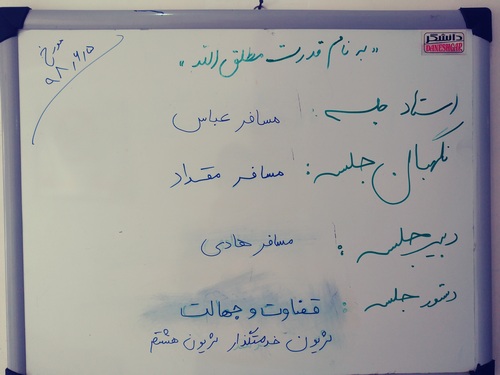 دانشگر
DANESHGAR
مورخ
۹۸,۶,۵
" به نام قدرت مطلق الله "
استاد جلسه : مسافر عباس
نگهبان جلسه : مسافر مقداد
دبیر جلسه : مسافر هادی
دستور جلسه : قضاوت و جهالت
لژیون خدمتگذار لژیون هشتم